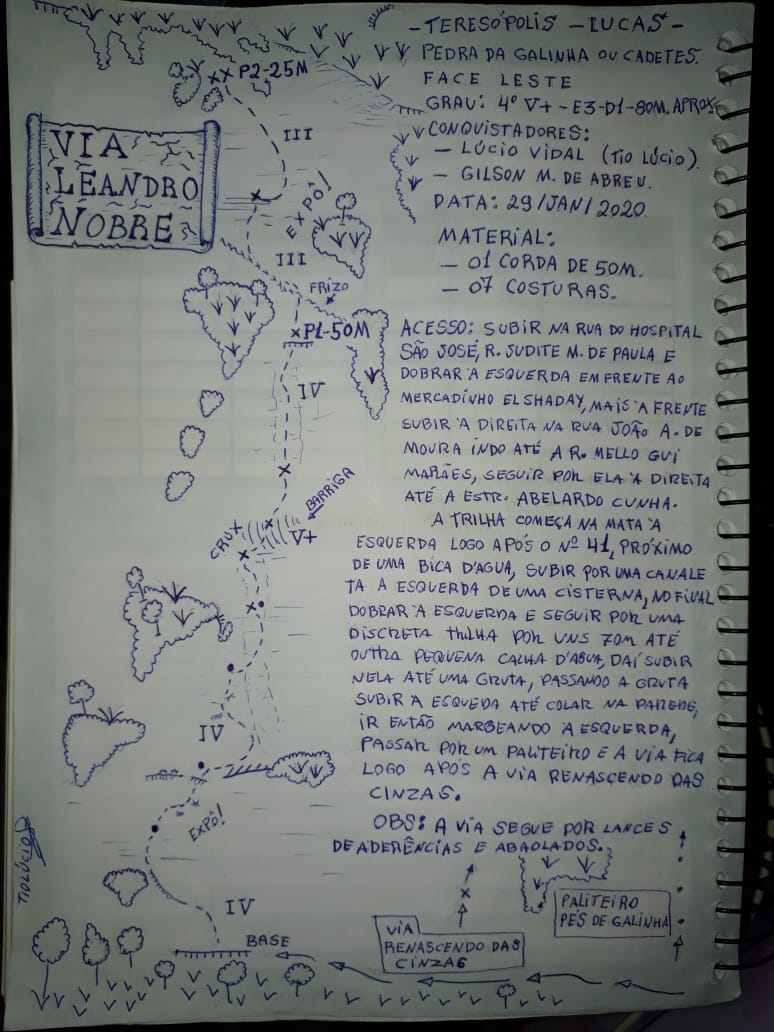 -TERESÓPOLIS -LUCAS-
PEDRA DA GALINHA OU CADETES.
FACE LESTE
GRAU: 4º V+ - E3-D1-80M. APROX.
CONQUISTADORES:
- LÚCIO VIDAL (TIO LÚCIO).
- GILSON M. DE ABREU.
DATA: 29/JAN/2020.
MATERIAL:
- 01 CORDA DE 50M.
- 07 COSTURAS.
VIA
LEANDRO
NOBRE
P2-25M
III
EXPÔ!
III
FRIZO
P1-50M
IV
BARRIGA
CRUX
V+
IV
EXPÔ!
IV
BASE
TIOLÚCIO
ACESSO: SUBIR NA RUA DO HOSPITAL
SÃO JOSÉ, R. JUDITE M. DE PAULA E
DOBRAR À ESQUERDA EM FRENTE AO
MERCADINHO EL SHADAY, MAIS À FRENTE
SUBIR À DIREITA NA RUA JOÃO A. DE
MOURA INDO ATÉ A R. MELLO GUI
MARÃES, SEGUIR POR ELA À DIREITA
ATÉ A ESTR. ABELARDO CUNHA.
A TRILHA COMEÇA NA MATA À
ESQUERDA LOGO APÓS O Nº 41, PRÓXIMO
DE UMA BICA D'AGUA, SUBIR POR UMA CANALE
TA A ESQUERDA DE UMA CISTERNA, NO FINAL
DOBRAR À ESQUERDA E SEGUIR POR UMA
DISCRETA TRILHA POR UNS 70M ATÉ
OUTRA PEQUENA CALHA D'AGUA, DAÍ SUBIR
NELA ATÉ UMA GRUTA, PASSANDO A GRUTA
SUBIR À ESQUEDA ATÉ COLAR NA PAREDE,
IR ENTÃO MARGEANDO À ESQUERDA,
PASSAR POR UM PALITEIRO E A VIA FICA
LOGO APÓS A VIA RENASCENDO DAS
CINZAS.
OBS: A VIA SEGUE POR LANCES
DE ADERÊNCIAS E ABAOLADOS.
VIA
RENASCENDO DAS
CINZAS
PALITEIRO
PÉS DE GALINHA